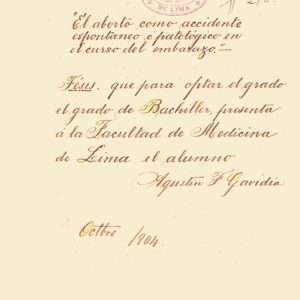 DE LIMA
"El aborto como accidente
espontaneo ó patológico en
el curso del embarazo."
Tésis, que para optar el grado
el grado de Bachiller, presenta
á la Facultad de Medicina
de Lima, el alumno
Agustin F Gavidia
Octbre 1904.